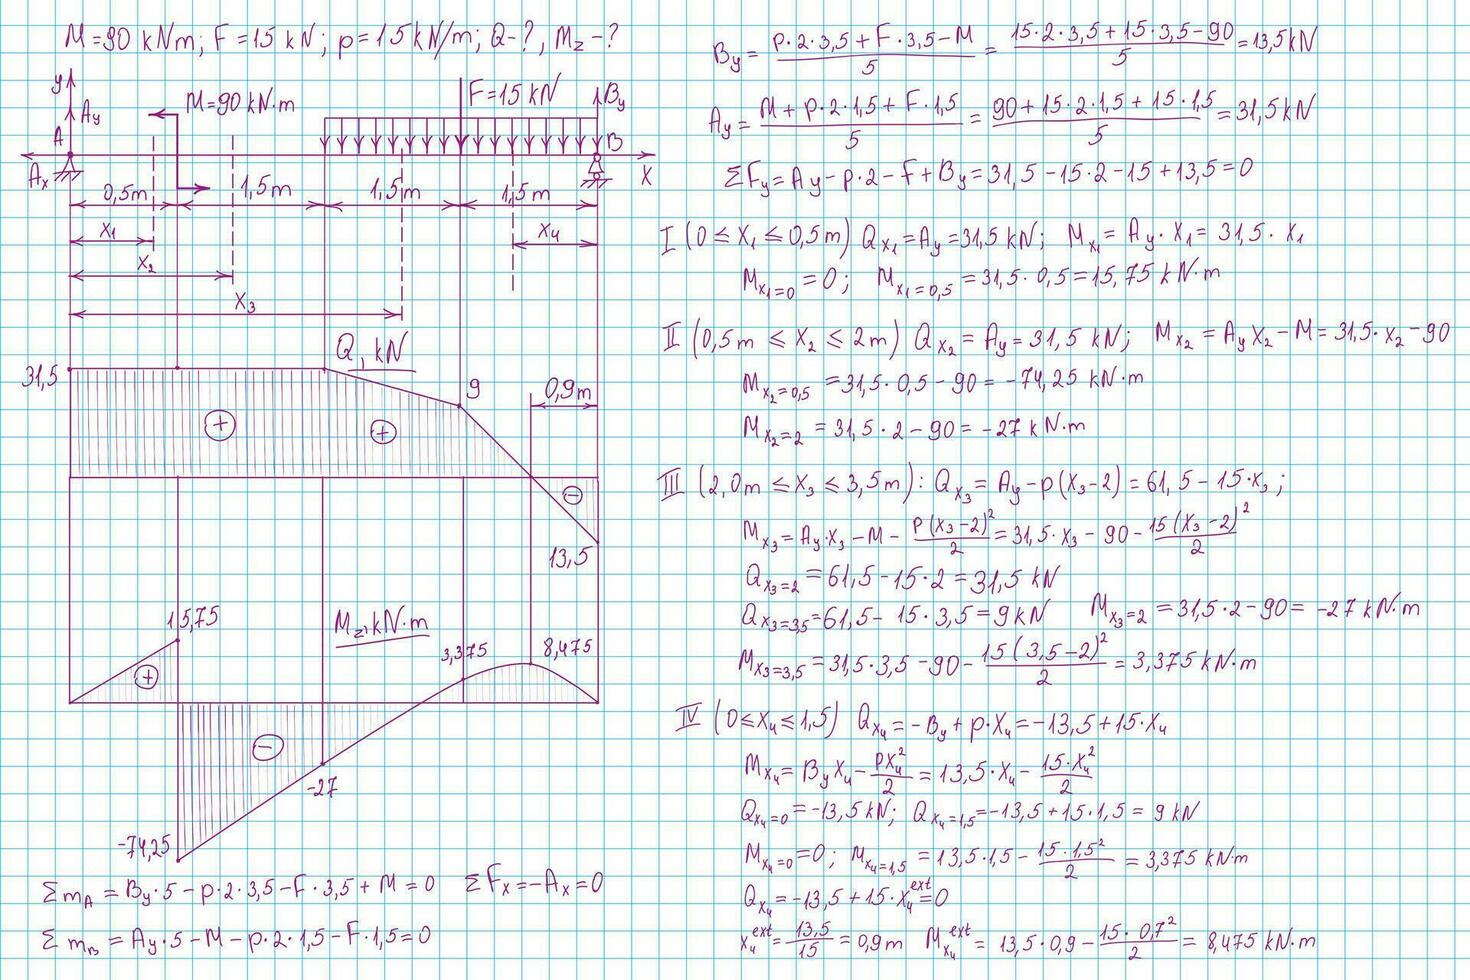 M=90 kNm; F=15 kN; p=15kN/m; Q-?, Mz-?
y
Ay
A
Ax
M=90 kN·m
F=15 kN
By
B
X
0,5m
1,5m
1,5m
1,5m
x₁
x₂
x₃
x₄
Q, kN
31,5
9
0,9m
+
+
−
13,5
Mz, kN·m
15,75
3,375
8,475
+
−
-27
-74,25
Σm_A = By·5 − p·2·3,5 − F·3,5 + M = 0 ΣFx = −Ax = 0
Σm_B = Ay·5 − M − p·2·1,5 − F·1,5 = 0
By = (p·2·3,5 + F·3,5 − M)/5 = (15·2·3,5 + 15·3,5 − 90)/5 = 13,5 kN
Ay = (M + p·2·1,5 + F·1,5)/5 = (90 + 15·2·1,5 + 15·1,5)/5 = 31,5 kN
ΣFy = Ay − p·2 − F + By = 31,5 − 15·2 − 15 + 13,5 = 0
I (0 ≤ x₁ ≤ 0,5m) Qx₁ = Ay = 31,5 kN; Mx₁ = Ay·x₁ = 31,5·x₁
Mx₁=0 = 0; Mx₁=0,5 = 31,5·0,5 = 15,75 kN·m
II (0,5m ≤ x₂ ≤ 2m) Qx₂ = Ay = 31,5 kN; Mx₂ = Ay x₂ − M = 31,5·x₂ − 90
Mx₂=0,5 = 31,5·0,5 − 90 = −74,25 kN·m
Mx₂=2 = 31,5·2 − 90 = −27 kN·m
III (2,0m ≤ x₃ ≤ 3,5m): Qx₃ = Ay − p(x₃−2) = 61,5 − 15·x₃;
Mx₃ = Ay·x₃ − M − p(x₃−2)²/2 = 31,5·x₃ − 90 − 15(x₃−2)²/2
Qx₃=2 = 61,5 − 15·2 = 31,5 kN
Qx₃=3,5 = 61,5 − 15·3,5 = 9 kN Mx₃=2 = 31,5·2 − 90 = −27 kN·m
Mx₃=3,5 = 31,5·3,5 − 90 − 15(3,5−2)²/2 = 3,375 kN·m
IV (0 ≤ x₄ ≤ 1,5) Qx₄ = −By + p·x₄ = −13,5 + 15·x₄
Mx₄ = By x₄ − px₄²/2 = 13,5·x₄ − 15·x₄²/2
Qx₄=0 = −13,5 kN; Qx₄=1,5 = −13,5 + 15·1,5 = 9 kN
Mx₄=0 = 0; Mx₄=1,5 = 13,5·1,5 − 15·1,5²/2 = 3,375 kN·m
Qx₄ = −13,5 + 15·x₄ᵉˣᵗ = 0
x₄ᵉˣᵗ = 13,5/15 = 0,9m Mx₄ᵉˣᵗ = 13,5·0,9 − 15·0,7²/2 = 8,475 kN·m